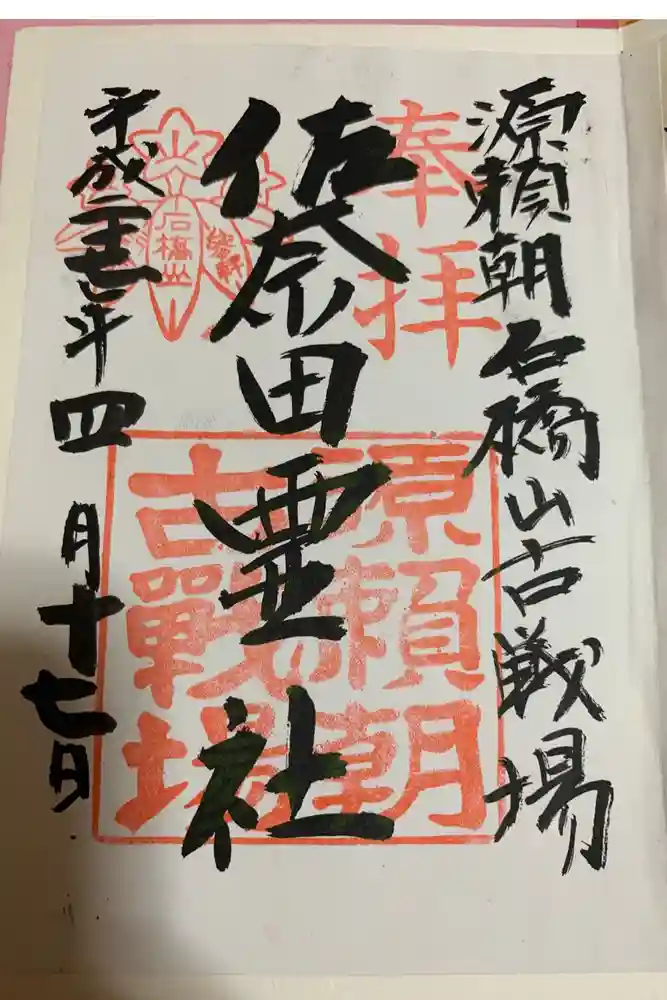 源頼朝石橋山古戦場
奉拝
佐奈田霊社
源賴朝
古戰場
石橋山
平成二十七年四月十七日